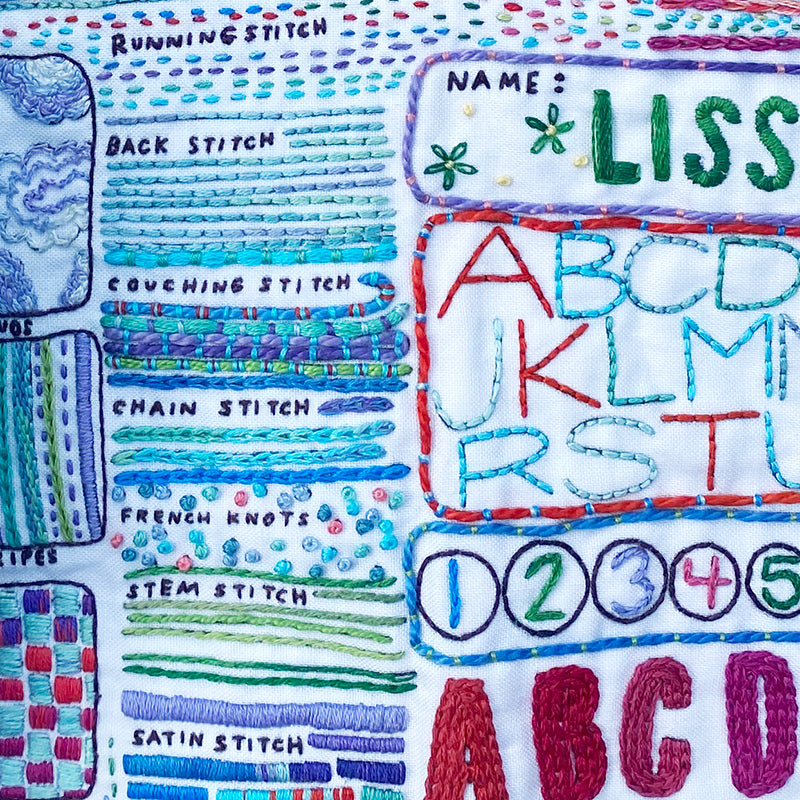 RUNNING STITCH
NAME:
LISS
BACK STITCH
COUCHING STITCH
ABCD
JKLM
RST
CHAIN STITCH
FRENCH KNOTS
STEM STITCH
1 2 3 4 5
ABCD
SATIN STITCH